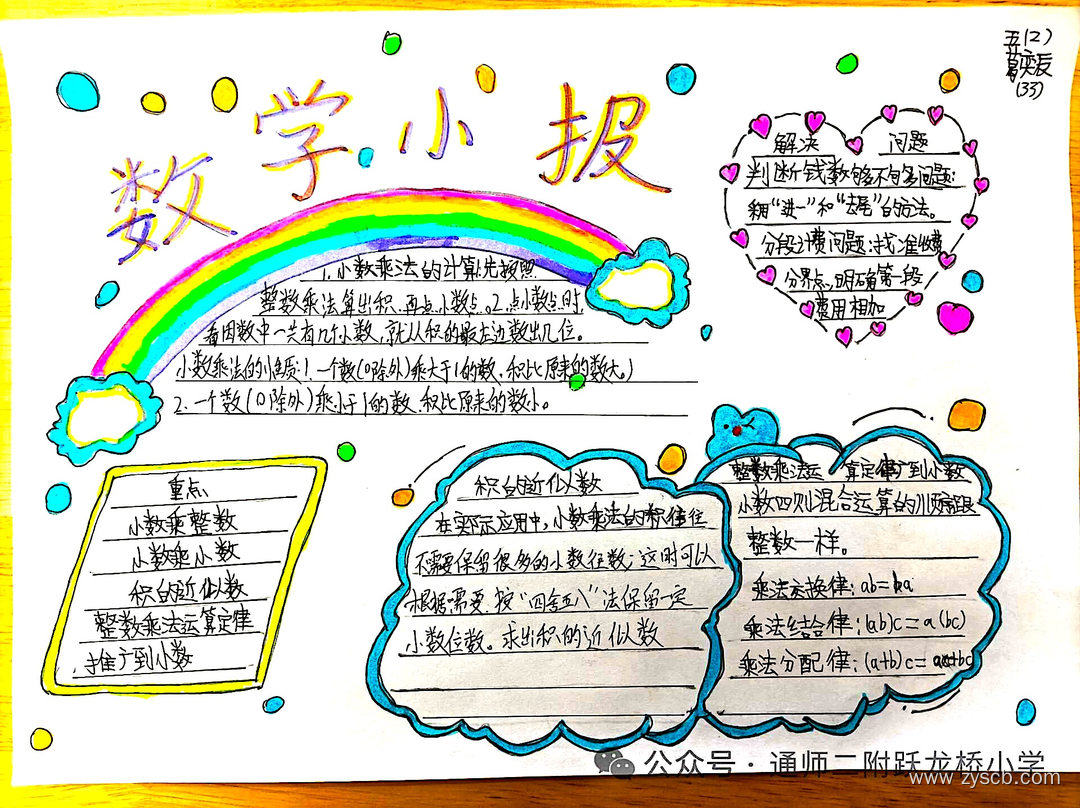 数学小报
五(2)
(33)
1.小数乘法的计算:先按照
整数乘法算出积,再点小数点。2.点小数点时,
看因数中一共有几个小数,就从积的最右边数出几位。
小数乘法的性质:1.一个数(0除外)乘大于1的数,积比原来的数大。)
2.一个数(0除外)乘小于1的数,积比原来的数小。
解决 问题
判断钱数够不够问题:
采用“进一”和“去尾”的方法。
分段计费问题:找准收费
分界点,明确第一段
费用相加
重点
小数乘整数
小数乘小数
积的近似数
整数乘法运算定律
推广到小数
积的近似数
在实际应用中,小数乘法的积往往
不需要保留很多的小数位数,这时可以
根据需要,按“四舍五入”法保留一定
小数位数。求出积的近似数
整数乘法运算定律广到小数
小数四则混合运算的顺序跟
整数一样。
乘法交换律:ab=ba
乘法结合律:(ab)c=a(bc)
乘法分配律:(a+b)c=ac+bc
公众号·通师二附跃龙桥小学
www.zyscb.com